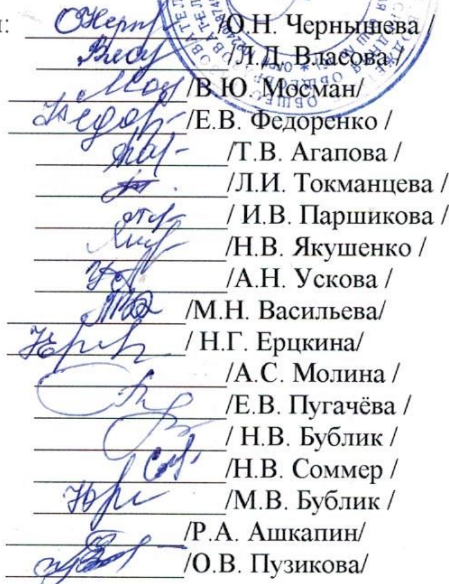 /О.Н. Чернышева /
/Л.Д. Власова
/В.Ю. Мосман/
/Е.В. Федоренко /
/Т.В. Агапова /
/Л.И. Токманцева /
/ И.В. Паршикова /
/Н.В. Якушенко /
/А.Н. Ускова /
/М.Н. Васильева/
/ Н.Г. Ерцкина/
/А.С. Молина /
/Е.В. Пугачёва /
/ Н.В. Бублик /
/Н.В. Соммер /
/М.В. Бублик /
/Р.А. Ашкапин/
/О.В. Пузикова/